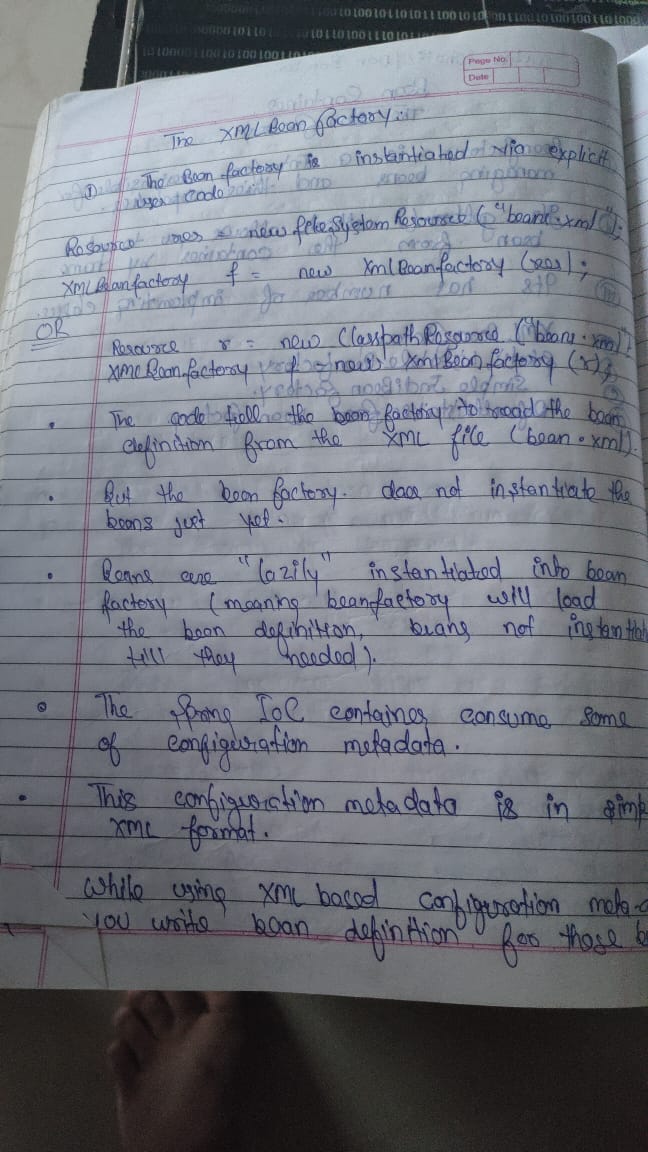 Page No.
Date
The XML Bean factory
① The Bean factory is instantiated via explicit
user code
Resource res = new fileSystem Resource ("bean.xml");
XMLBeanfactory f = new XmlBeanfactory (res);
OR
Resource r = new Classpath Resource ("bean.xml");
XMLBeanfactory f = new XmlBeanfactory (r);
• The code tell the bean factory to read the bean
definition from the XML file (bean.xml).
• But the bean factory. does not instantiate the
beans just yet.
• Beans are "lazily" instantiated into bean
factory (meaning beanfactory will load
the bean definition, beans not instantia
till they needed).
• The Spring IoC container consume some
of configuration metadata.
• This configuration metadata is in simp
XML format.
While using XML based configuration meta-d
you write bean definition for those b